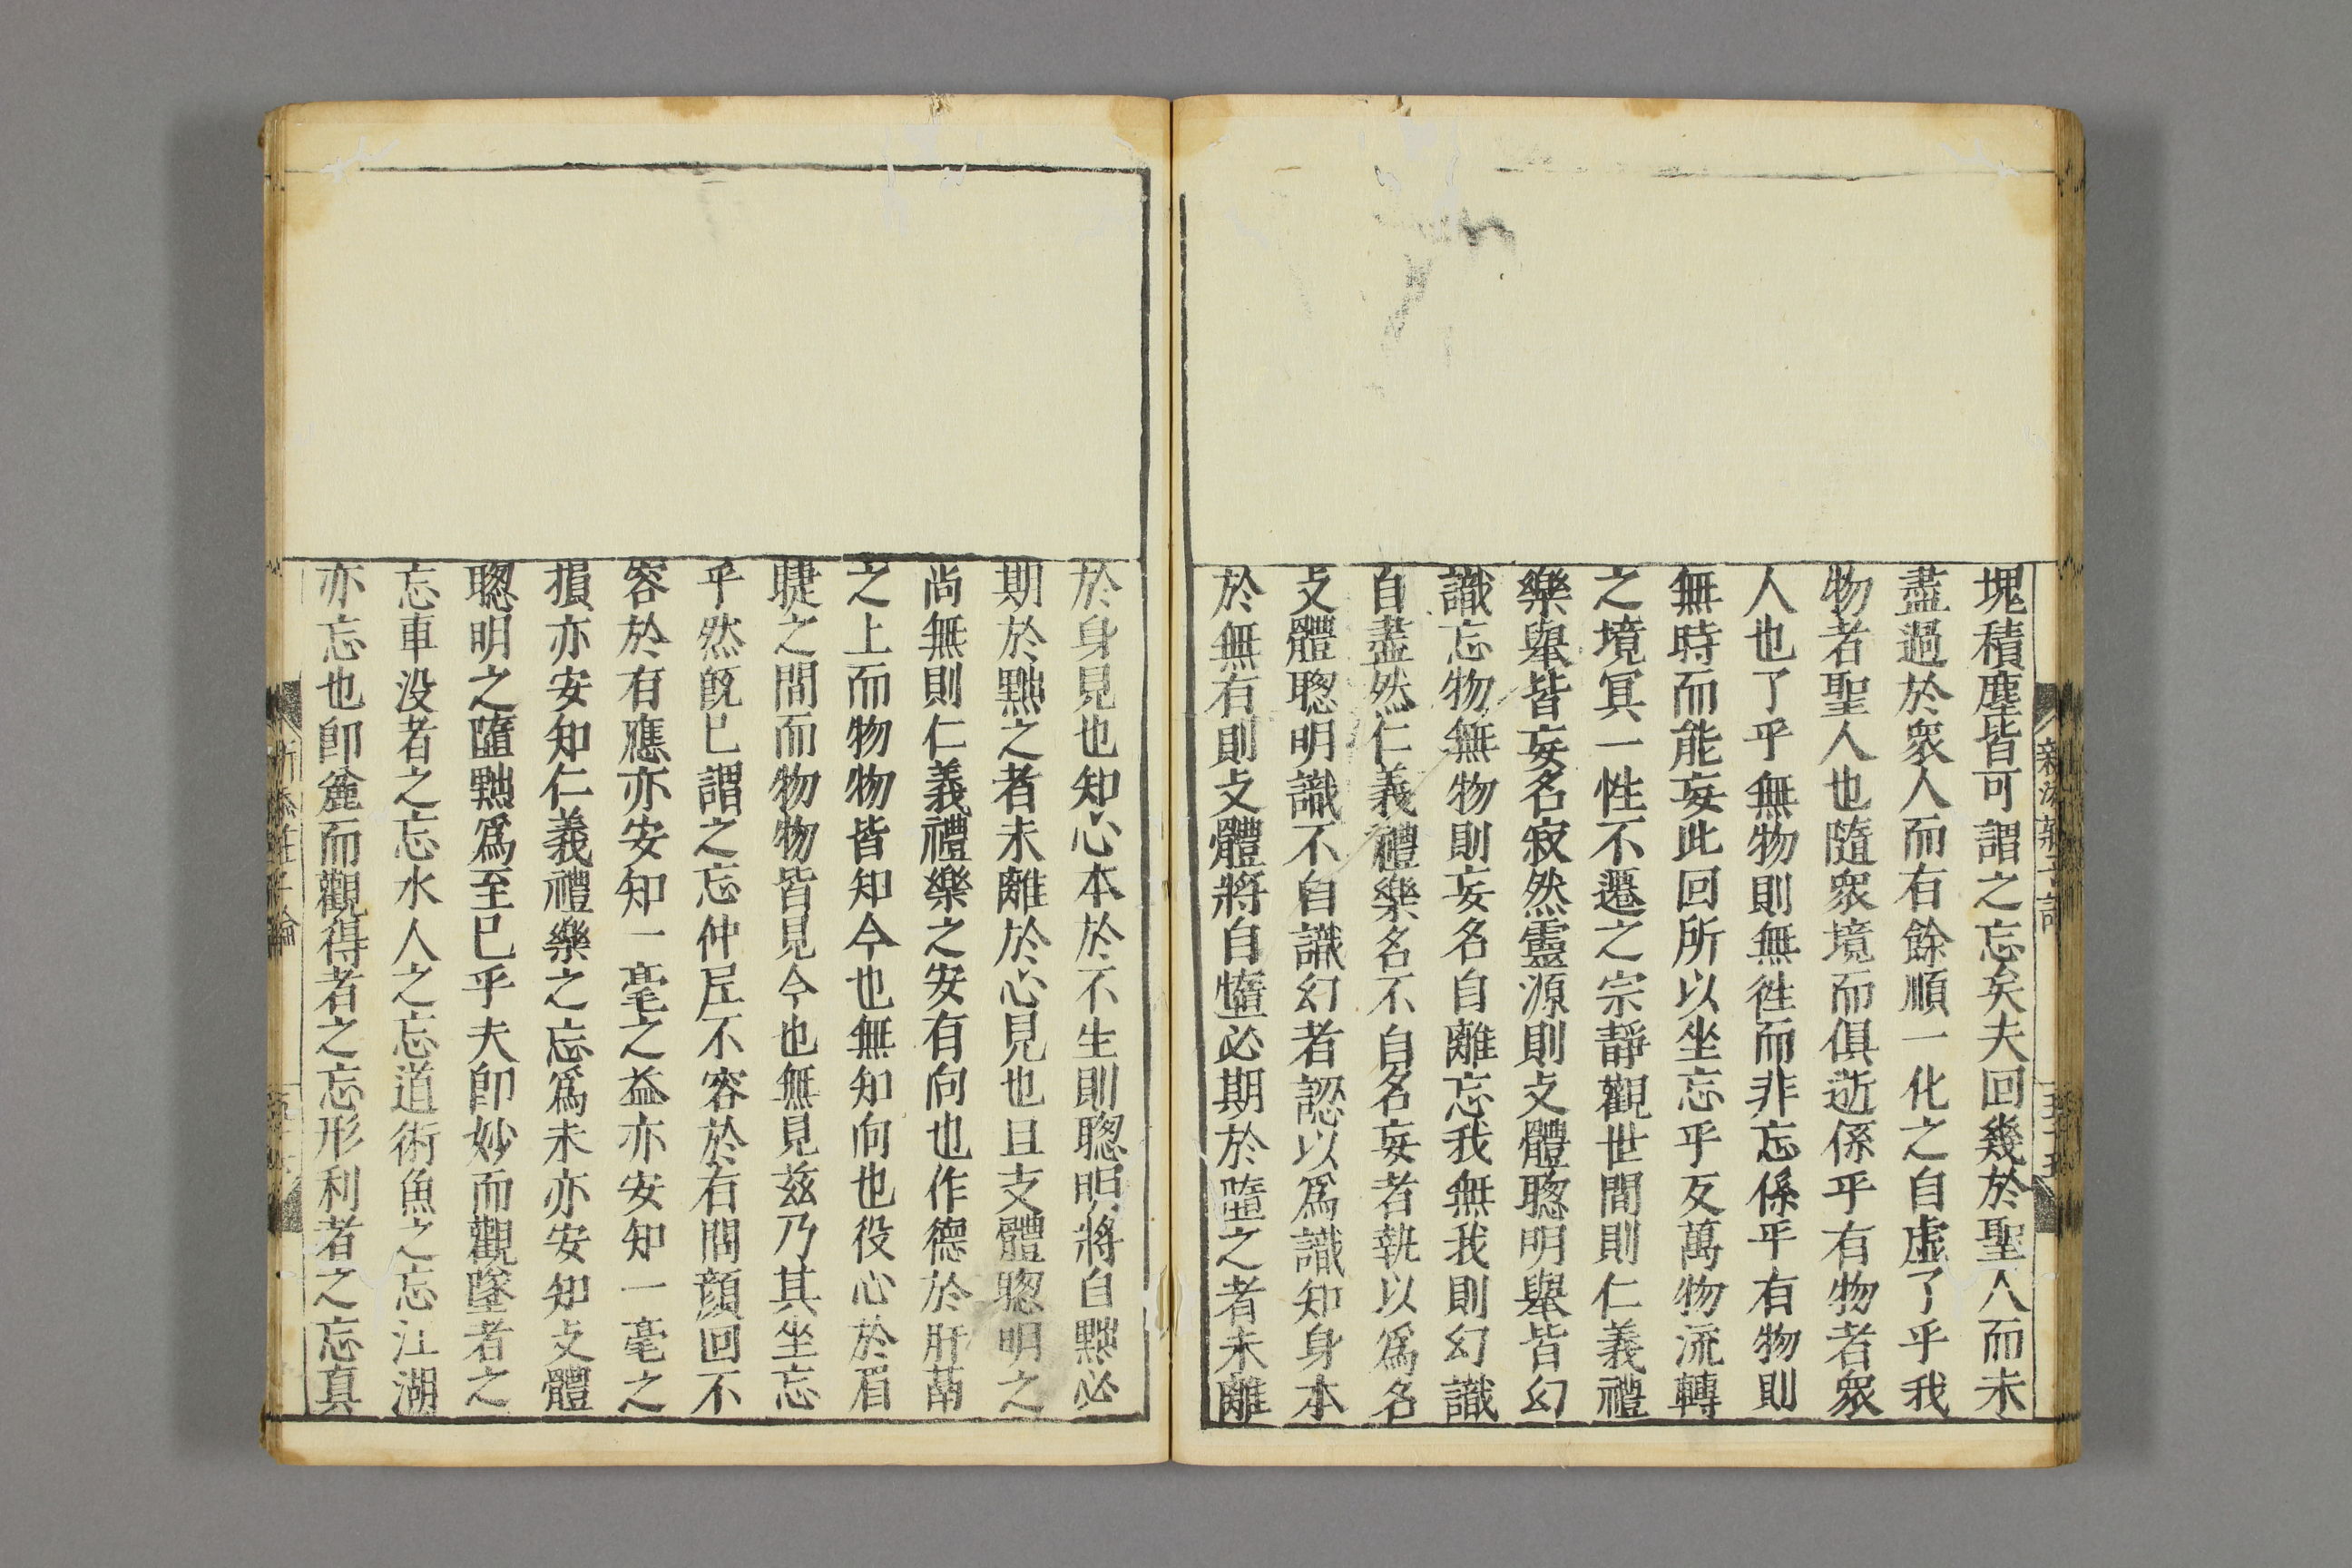 塊積塵皆可謂之忘矣夫回幾於聖人而未
盡過於衆人而有餘順一化之自虛了乎我
物者聖人也隨衆境而俱逝係乎有物者衆
人也了乎無物則無徃而非忘係乎有物則
無時而能妄此回所以坐忘乎反萬物流轉
之境冥一性不遷之宗靜觀世間則仁義禮
樂舉皆妄名寂然靈源則攴體聦明舉皆幻
識忘物無物則妄名自離忘我無我則幻識
自盡然仁義禮樂名不自名妄者執以爲名
攴體聦明識不自識幻者認以爲識知身本
於無有則攴體將自墮必期於墮之者未離
於身見也知心本於不生則聦明將自黜必
期於黜之者未離於心見也且支體聦明之
尚無則仁義禮樂之安有向也作德於肝膈
之上而物物皆知今也無知向也役心於眉
睫之間而物物皆見今也無見兹乃其坐忘
乎然旣已謂之忘仲尼不容於有問顔回不
容於有應亦安知一毫之益亦安知一毫之
損亦安知仁義禮樂之忘爲未亦安知攴體
聦明之墮黜爲至已乎夫卽妙而觀墜者之
忘車没者之忘水人之忘道術魚之忘江湖
亦忘也卽麄而觀得者之忘形利者之忘真